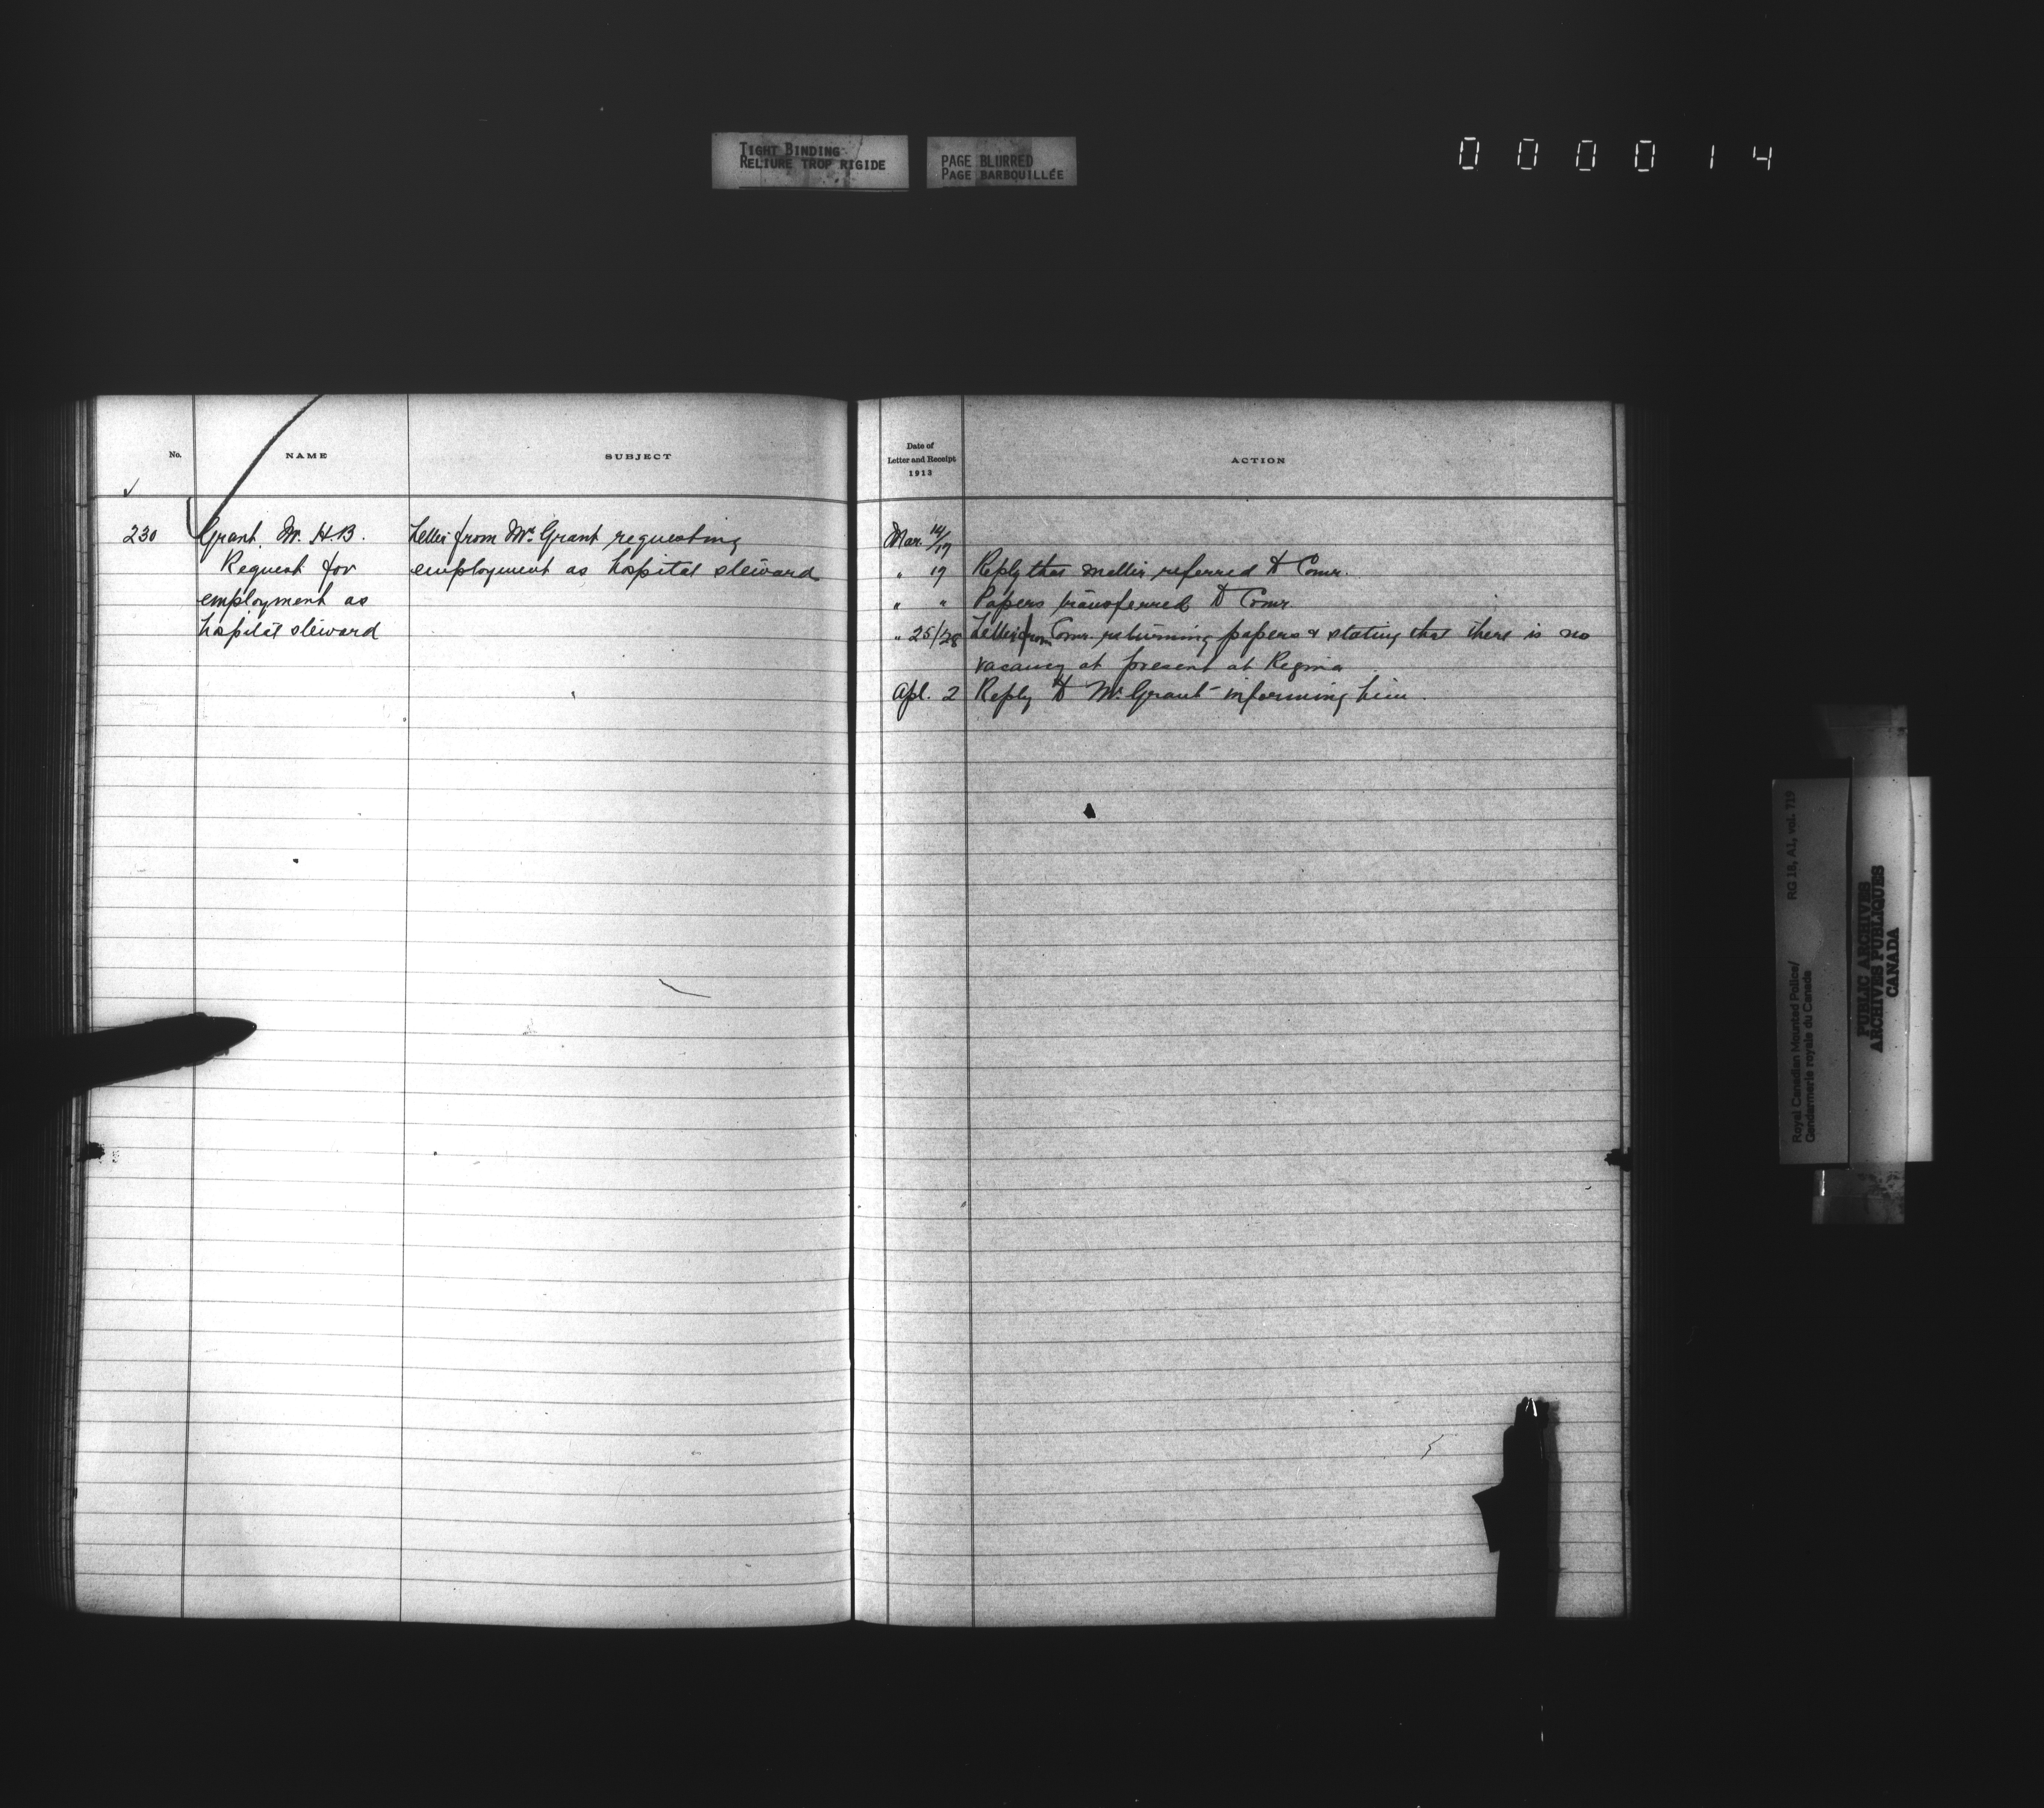 TIGHT BINDING
RELIURE TROP RIGIDE
PAGE BLURRED
PAGE BARBOUILLÉE
000014
No.
NAME
SUBJECT
230
Grant. W. H.B.
Request for
employment as
hospital steward
Letter from Mr. Grant requesting
employment as hospital steward
Date of
Letter and Receipt
1913
ACTION
Mar. 14/17
" 17 Reply that matter referred to Comr.
" " Papers transferred to Comr.
" 25/28 Letter from Comr. returning papers & stating that there is no
vacancy at present at Regina
Apl. 2 Reply to Mr. Grant informing him.
RG 18, A1, vol. 719
Royal Canadian Mounted Police/
Gendarmerie royale du Canada
PUBLIC ARCHIVES
ARCHIVES PUBLIQUES
CANADA